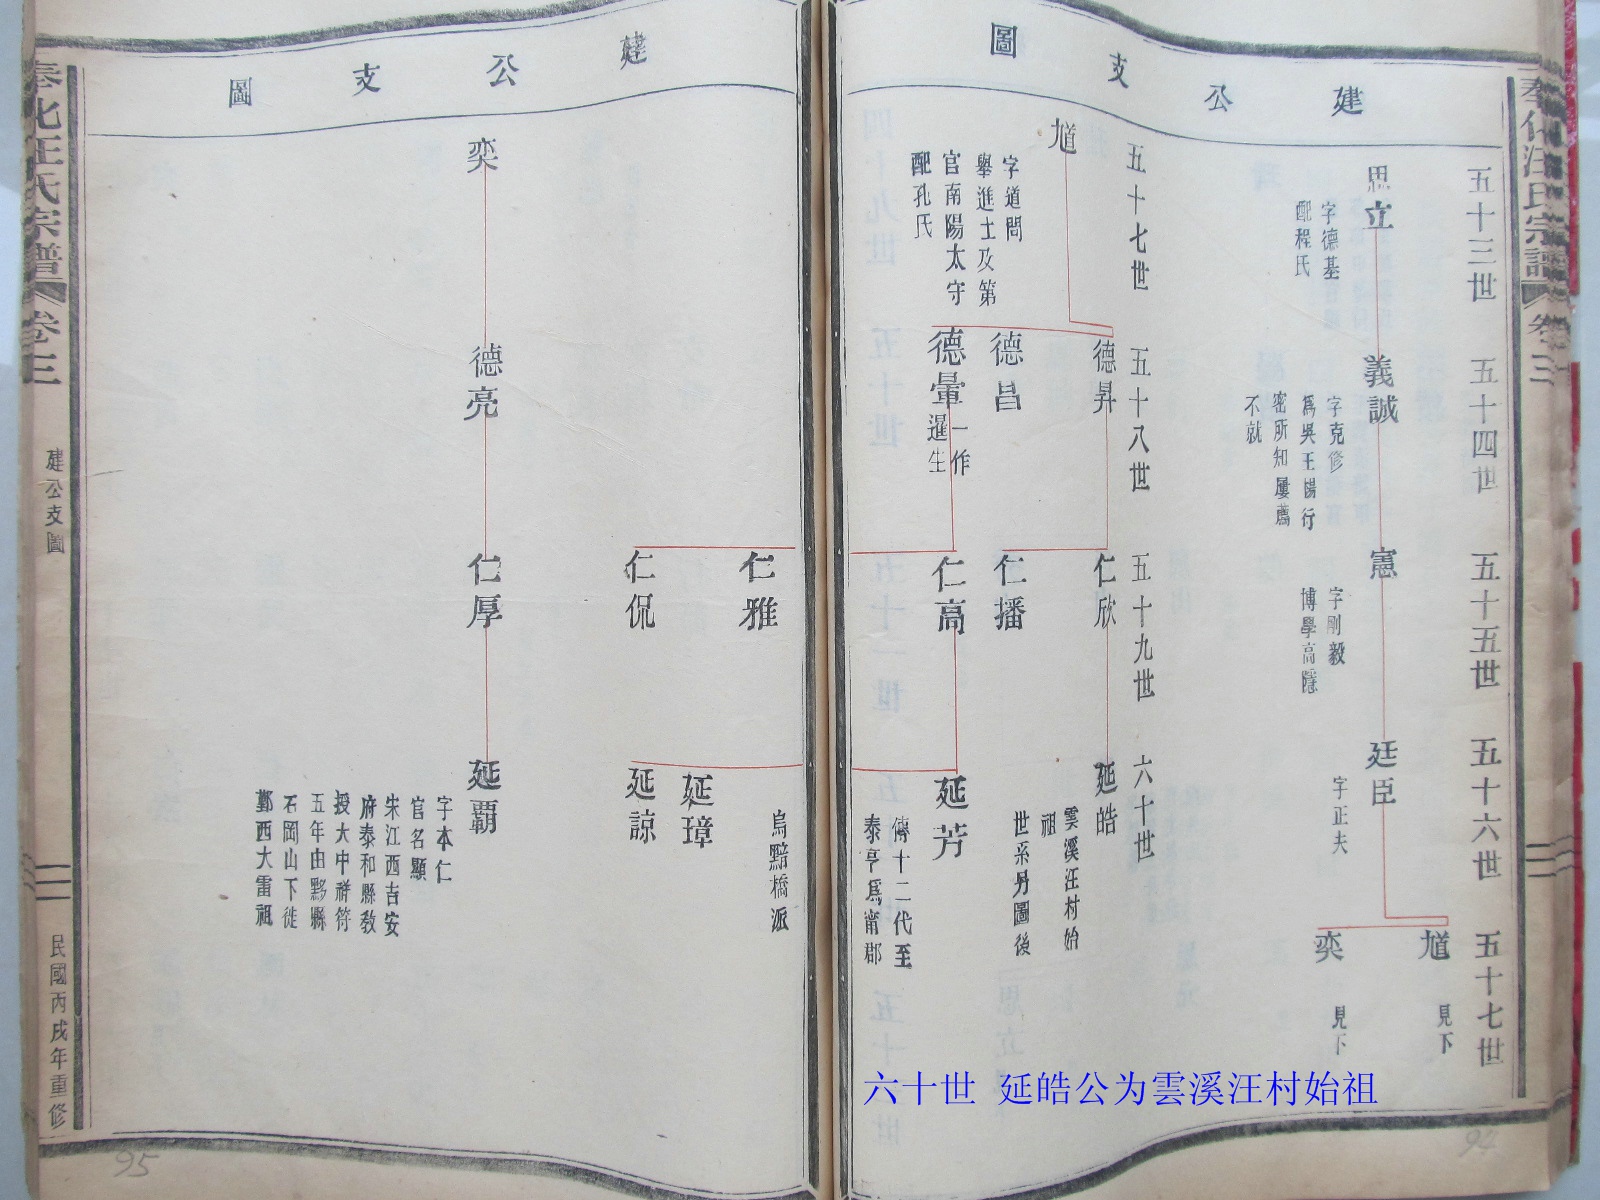 奉化汪氏宗譜
卷三
建公支圖
五十三世
五十四世
五十五世
五十六世
五十七世
思立
字德基
配程氏
義誠
字克修
爲吳王楊行
密所知屢薦
不就
憲
字剛毅
博學高隱
廷臣
字正夫
馗
見下
奕
見下
五十七世
五十八世
五十九世
六十世
馗
字道問
舉進士及第
官南陽太守
配孔氏
德昇
德昌
德暈
一作
暹生
仁欣
仁播
仁高
延皓
雲溪汪村始
祖
世系另圖後
延芳
傳十二代至
泰亨爲甯郡
六十世 延皓公为雲溪汪村始祖
94
建公支圖
烏黯橋派
仁雅
仁侃
延璋
延諒
奕
德亮
仁厚
延覇
字本仁
官名顯
宋江西吉安
府泰和縣教
授大中祥符
五年由黟縣
石岡山下徙
鄞西大雷祖
奉化汪氏宗譜
卷三
建公支圖
民國丙戌年重修
95